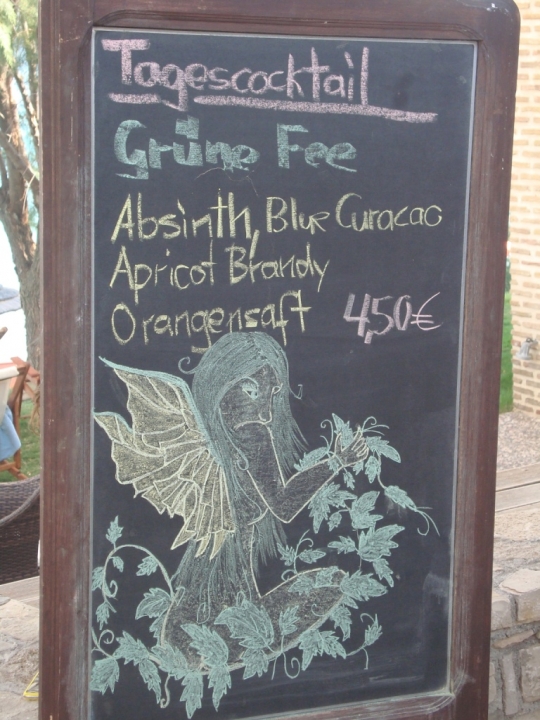 Tagescocktail
Grüne Fee
Absinth, Blue Curacao
Apricot Brandy
Orangensaft 4,50€